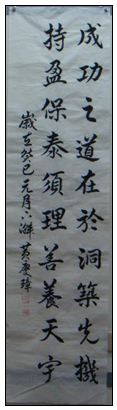 成功之道在於洞築先機
持盈保泰須理善養天宇
歲在癸巳元月下澣黃慶璋